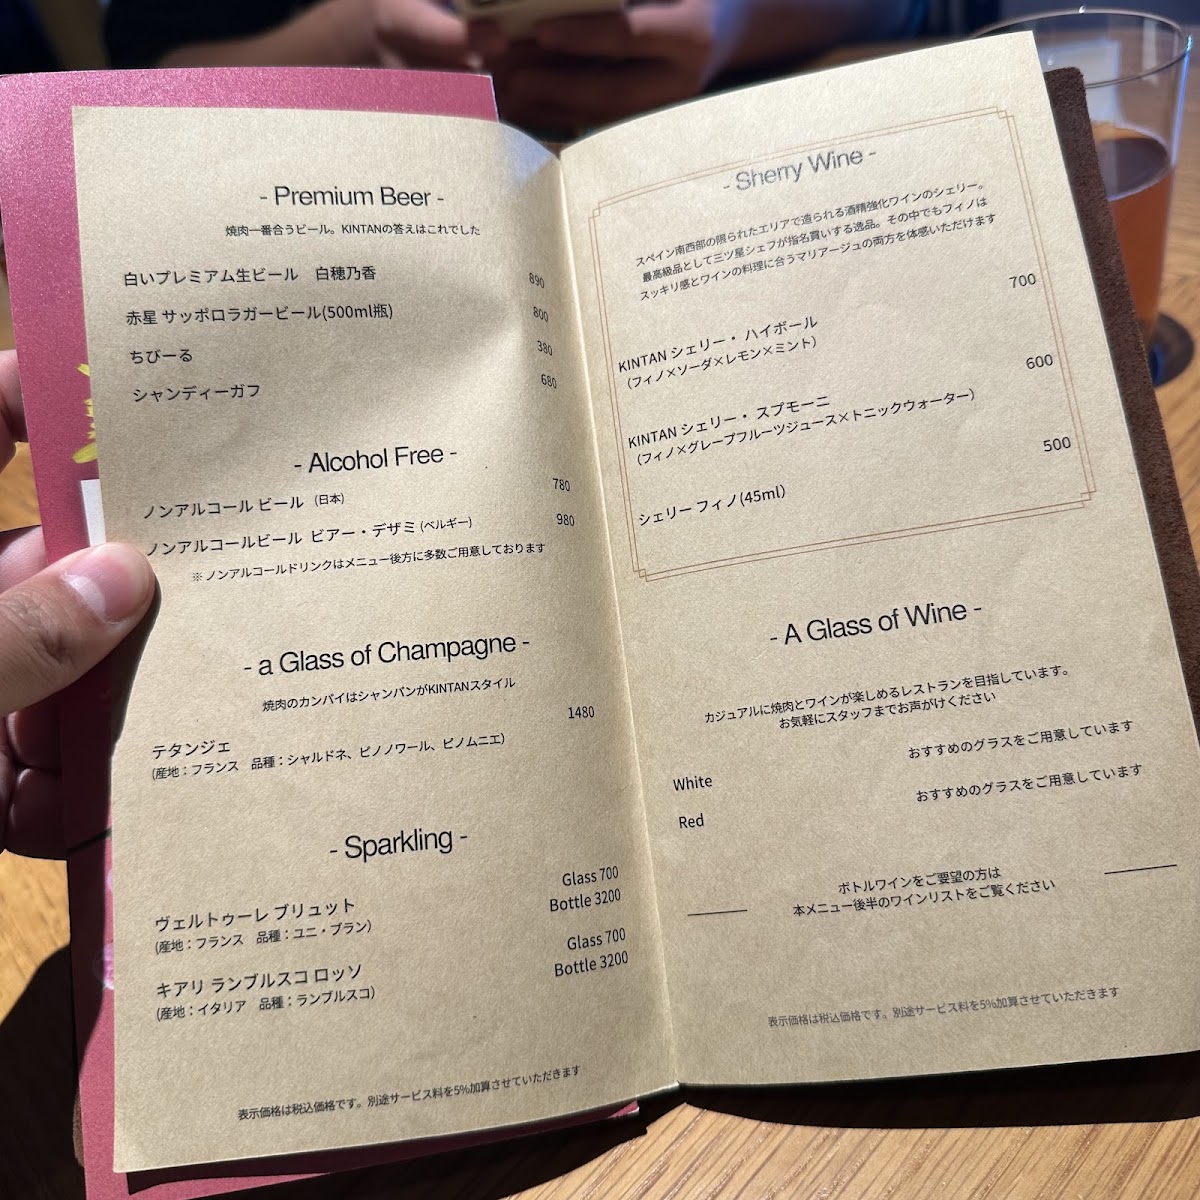 - Premium Beer -
焼肉一番合うビール。KINTANの答えはこれでした
白いプレミアム生ビール 白穂乃香 890
赤星 サッポロラガービール(500ml瓶) 800
ちびーる 380
シャンディーガフ 680
- Alcohol Free -
ノンアルコール ビール (日本) 780
ノンアルコールビール ビアー・デザミ (ベルギー) 980
※ ノンアルコールドリンクはメニュー後方に多数ご用意しております
- a Glass of Champagne -
焼肉のカンパイはシャンパンがKINTANスタイル
テタンジェ 1480
(産地：フランス 品種：シャルドネ、ピノノワール、ピノムニエ)
- Sparkling -
ヴェルトゥーレ ブリュット Glass 700
(産地：フランス 品種：ユニ・ブラン) Bottle 3200
キアリ ランブルスコ ロッソ Glass 700
(産地：イタリア 品種：ランブルスコ) Bottle 3200
表示価格は税込価格です。別途サービス料を5%加算させていただきます
- Sherry Wine -
スペイン南西部の限られたエリアで造られる酒精強化ワインのシェリー。
最高級品として三ツ星シェフが指名買いする逸品。その中でもフィノは
スッキリ感とワインの料理に合うマリアージュの両方を体感いただけます
KINTAN シェリー・ ハイボール 700
（フィノ×ソーダ×レモン×ミント）
KINTAN シェリー・ スプモーニ 600
（フィノ×グレープフルーツジュース×トニックウォーター）
シェリー フィノ(45ml) 500
- A Glass of Wine -
カジュアルに焼肉とワインが楽しめるレストランを目指しています。
お気軽にスタッフまでお声がけください
White おすすめのグラスをご用意しています
Red おすすめのグラスをご用意しています
ボトルワインをご要望の方は
本メニュー後半のワインリストをご覧ください
表示価格は税込価格です。別途サービス料を5%加算させていただきます